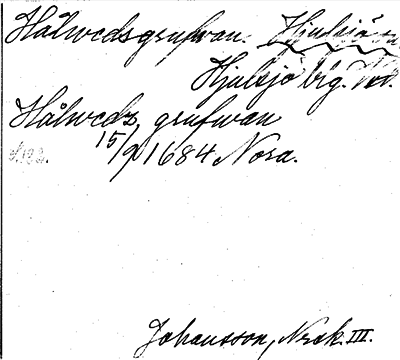 Hålvedsgrufvan. Hjulsjö sn
Hjulsjö blg. Vstm.
Hålwedz grufwan
15/9 1684 Nora.
Johansson, Norak. III.